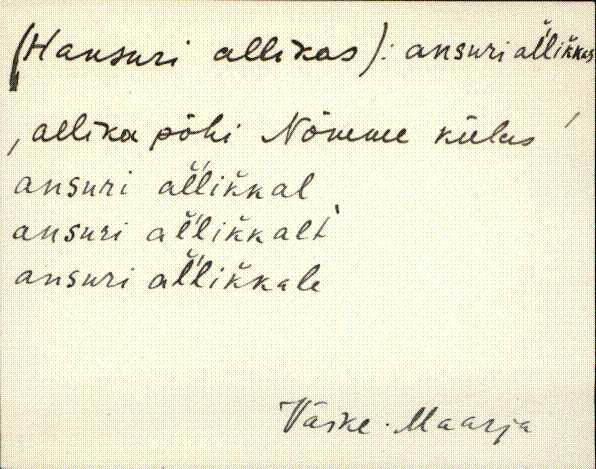 (Hansuri allikas): ansuri al̆l̆'ik̆kas
‚allika põhi Nõmme külas’
ansuri al̆l̆'ik̆kal
ansuri al̆l̆'ik̆kalt
ansuri al̆l̆'ik̆kale
Väike-Maarja